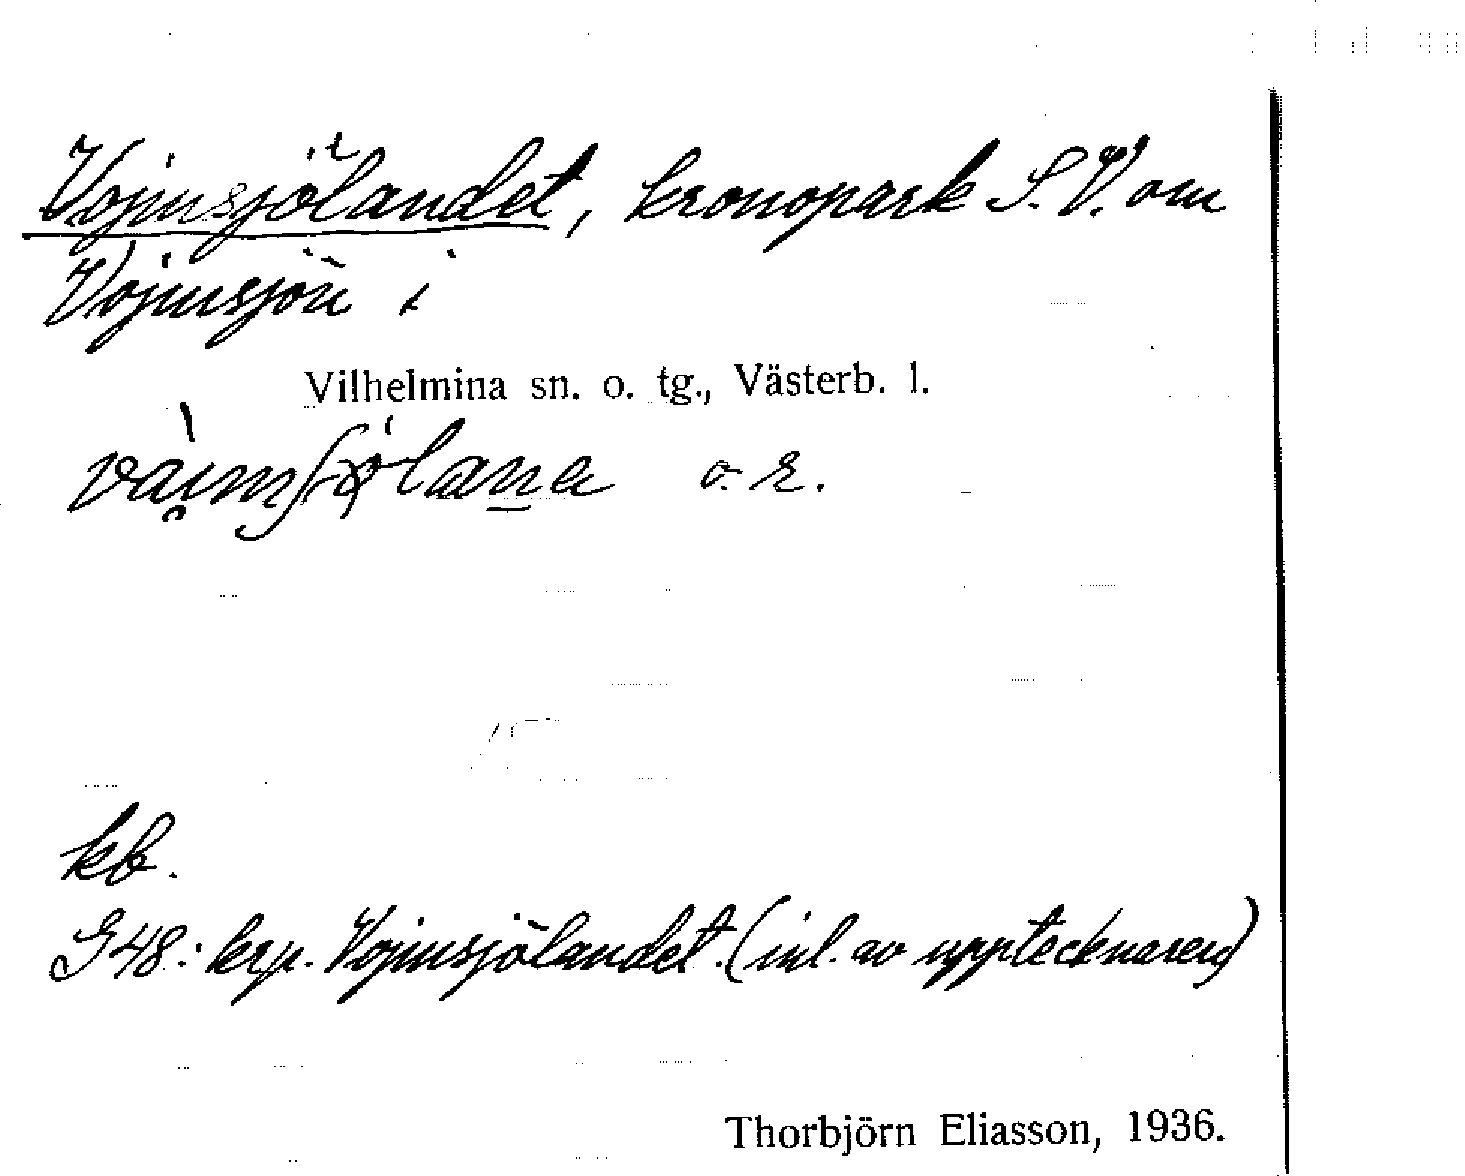 Vojmsjölandet, kronopark S.V. om
Vojmsjön i
Vilhelmina sn. o. tg., Västerb. l.
o. r.
kb.
G48: krp. Vojmsjölandet. (inl. av upptecknaren)
Thorbjörn Eliasson, 1936.